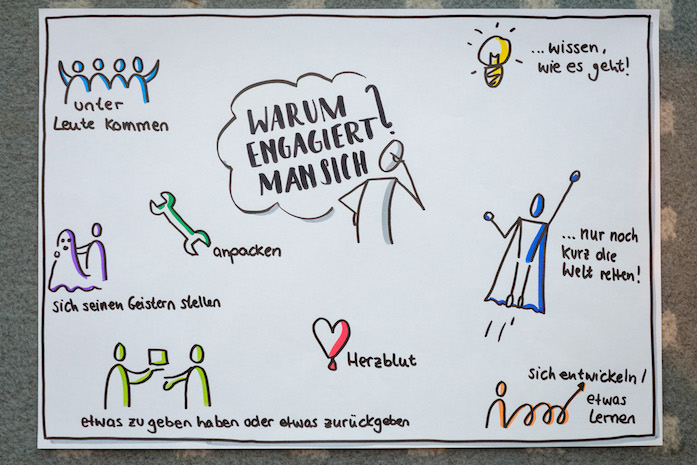 WARUM
ENGAGIERT
MAN SICH?
unter
Leute kommen
...wissen,
wie es geht!
anpacken
...nur noch
kurz die
Welt retten!
sich seinen Geistern stellen
Herzblut
sich entwickeln /
etwas
lernen
etwas zu geben haben oder etwas zurückgeben